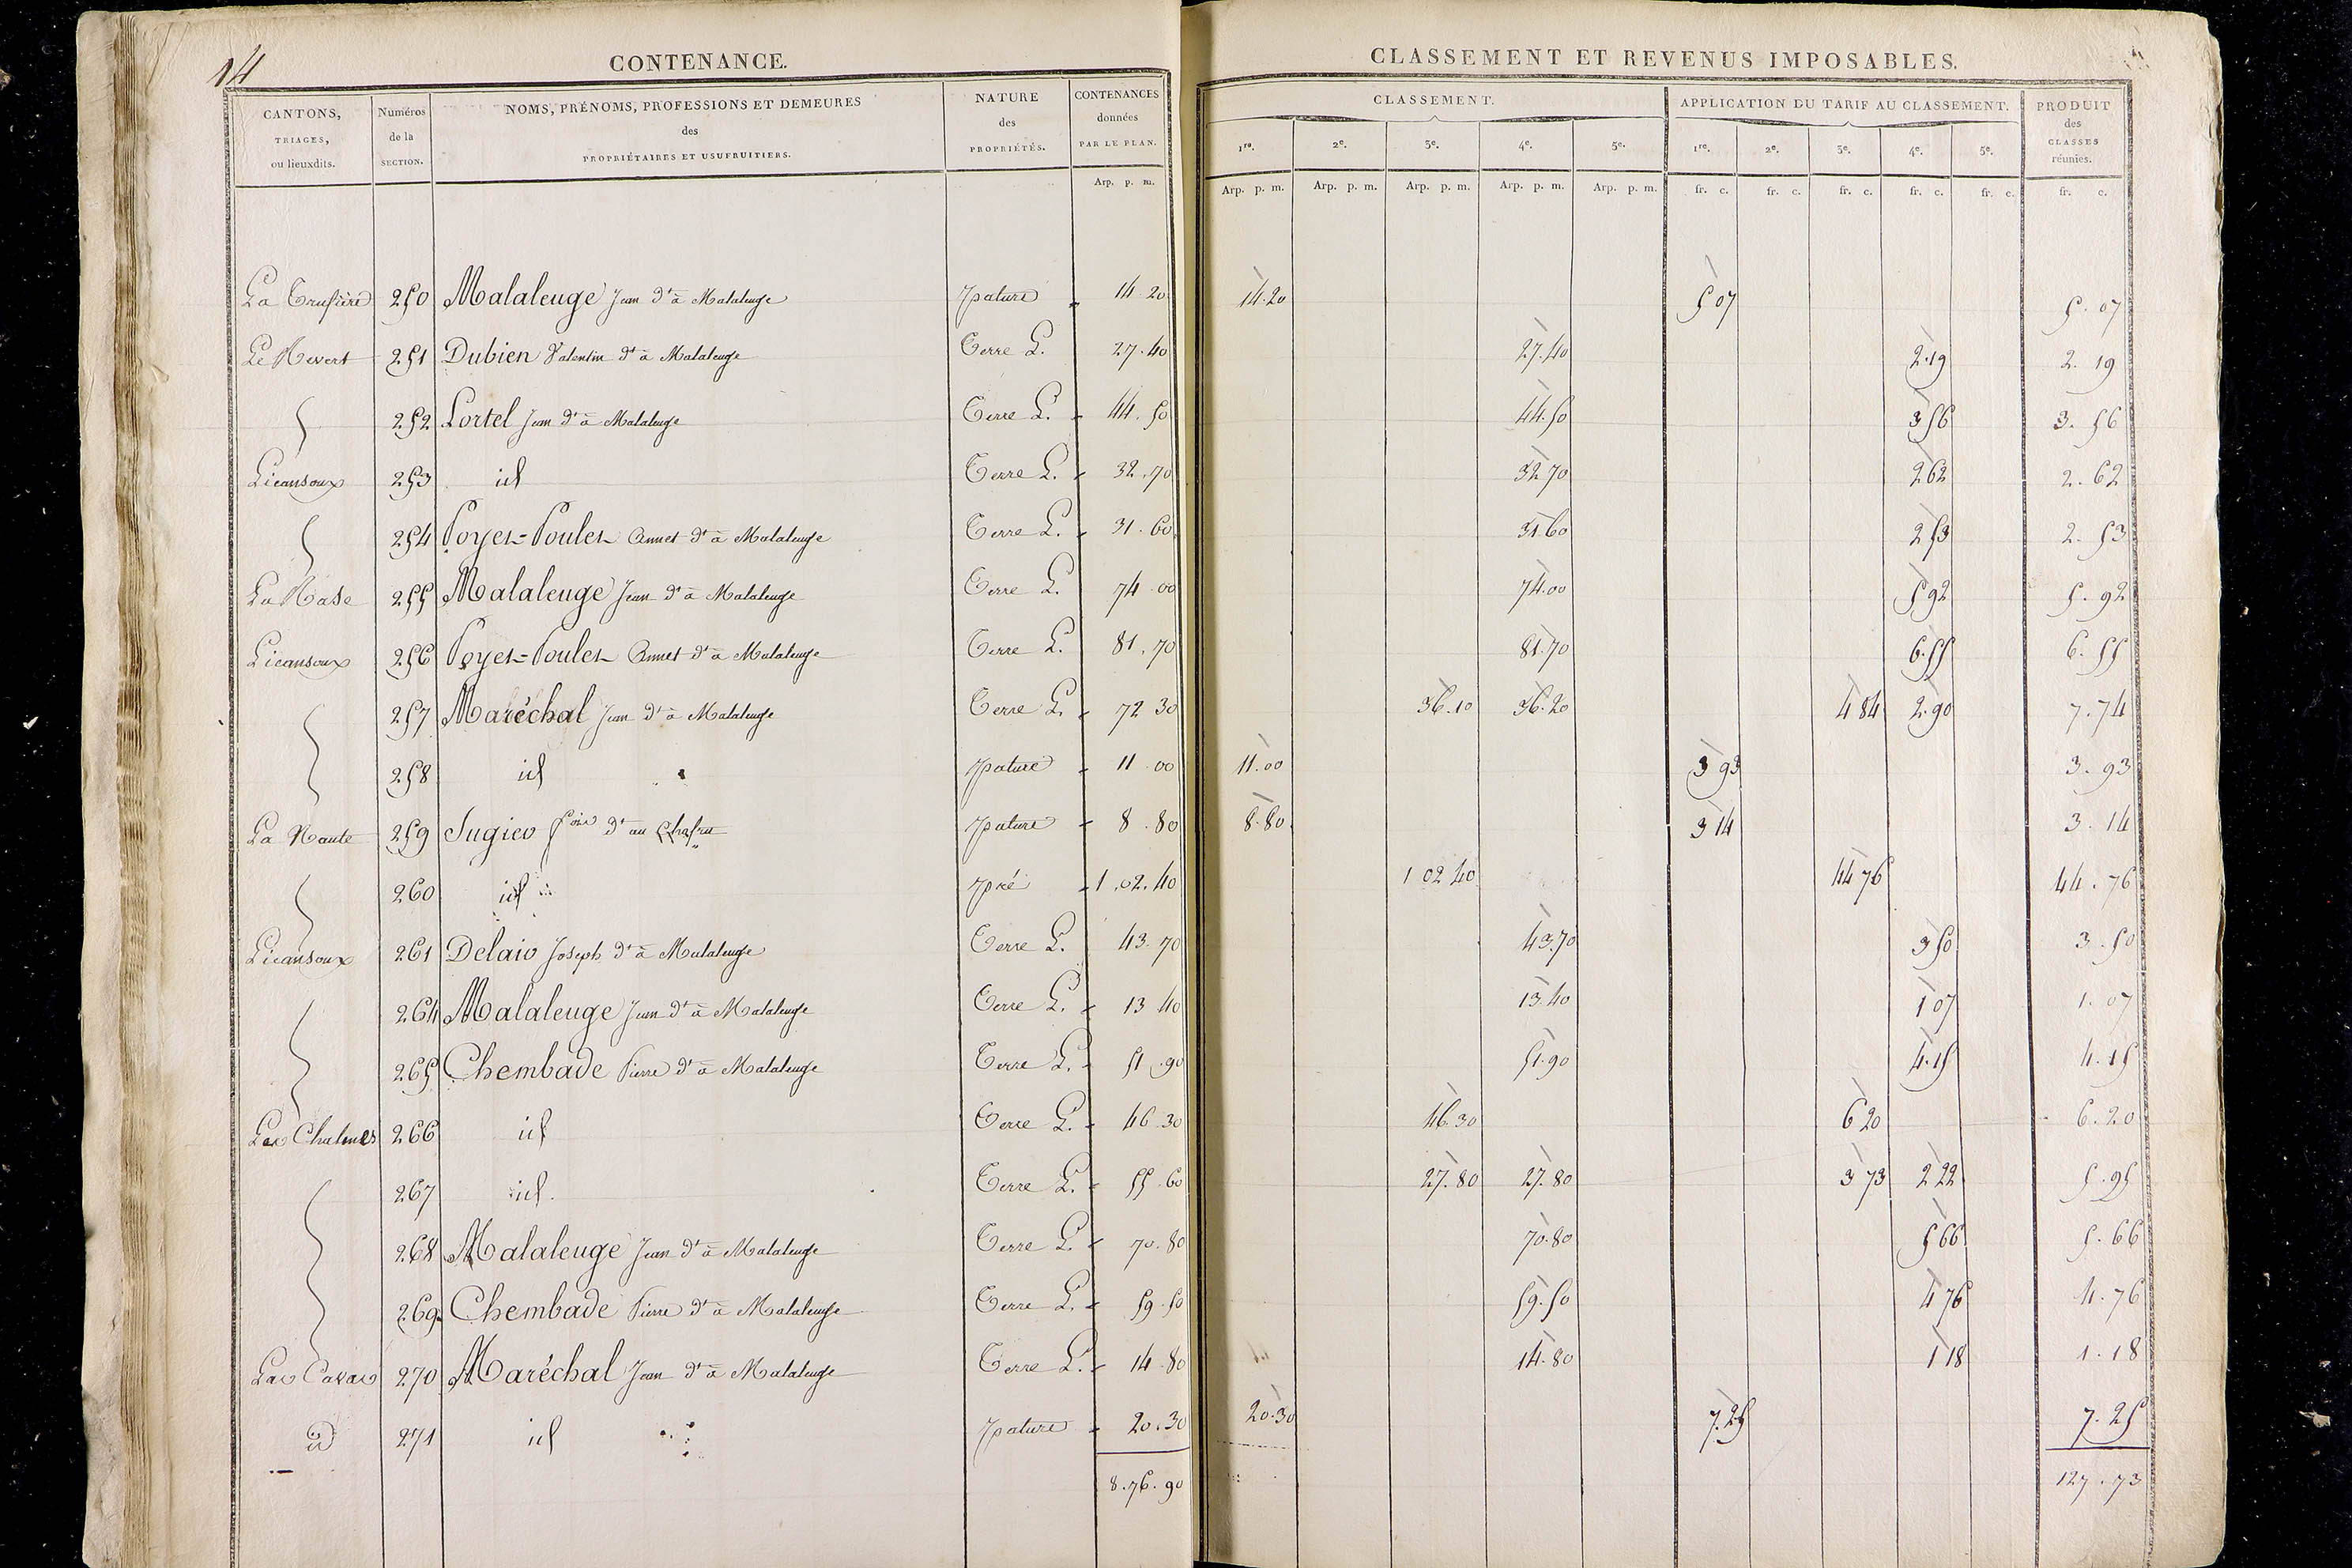 14
CONTENANCE.
CLASSEMENT ET REVENUS IMPOSABLES.
CANTONS, TRIAGES, ou lieuxdits.
Numéros de la SECTION.
NOMS, PRÉNOMS, PROFESSIONS ET DEMEURES des PROPRIÉTAIRES ET USUFRUITIERS.
NATURE des PROPRIÉTÉS.
CONTENANCES données PAR LE PLAN.
CLASSEMENT.
APPLICATION DU TARIF AU CLASSEMENT.
PRODUIT des CLASSES réunies.
1re. 2e. 3e. 4e. 5e. 1re. 2e. 3e. 4e. 5e.
Arp. p. m. Arp. p. m. Arp. p. m. Arp. p. m. Arp. p. m. Arp. p. m. fr. c. fr. c. fr. c. fr. c. fr. c. fr. c.
La 250 Malaleuge Jean dt à Malaleuge pature 14.20 14.20 5 07 5.07
Le Revert 251 Dubien Valentin dt à Malaleuge Terre L. 27.40 27.40 2.19 2.19
252 Lortel Jean dt à Malaleuge Terre L. 44.50 44.50 3 56 3.56
Licansoux 253 id Terre L. 32.70 32 70 2 62 2.62
254 Poyet-Poulet Annet dt à Malaleuge Terre L. 31.60 31.60 2 53 2.53
La Rase 255 Malaleuge Jean dt à Malaleuge Terre L. 74 00 74.00 5 92 5.92
Licansoux 256 Poyet-Poulet Annet dt à Malaleuge Terre L. 81.70 81.70 6.55 6.55
257 Maréchal Jean dt à Malaleuge Terre L. 72 30 36.10 36.20 4 84 2.90 7.74
258 id pature 11 00 11.00 3 93 3.93
La 259 dt au pature 8.80 8.80 3 14 3.14
260 id pré 1.02.40 1 02 40 44 76 44.76
Licansoux 261 Joseph dt à Malaleuge Terre L. 43.70 43.70 3 50 3.50
264 Malaleuge Jean dt à Malaleuge Terre L. 13 40 13.40 1 07 1.07
265 Chembade Pierre dt à Malaleuge Terre L. 51.90 51.90 4.15 4.15
Les Chalmes 266 id Terre L. 46 30 46.30 6 20 6.20
267 id. Terre L. 55.60 27.80 27.80 3 73 2 22 5.95
268 Malaleuge Jean dt à Malaleuge Terre L. 70.80 70.80 5 66 5.66
269 Chembade Pierre dt à Malaleuge Terre L. 59.50 59.50 4 76 4.76
270 Maréchal Jean dt à Malaleuge Terre L. 14.80 14.80 1 18 1.18
id 271 id pature 20.30 20.30 7.25 7.25
8.76.90 127.73